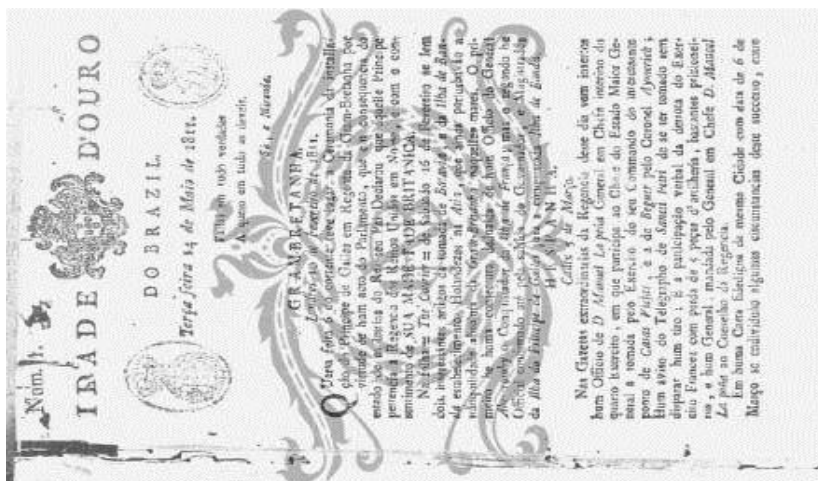 Num. 1.
IDADE D'OURO
DO BRAZIL.
Terça feira 14 de Maio de 1811.
Fallai em tudo verdades
A quem em tudo as deveis.
Sá, e Miranda.
GRAMBRETANHA.
Londres de Fevereiro de 1811.
Quarta feira 6 do corrente teve lugar a Ceremonia da installa-
ção do Principe de Galles em Regente da Gram-Bretanha por
virtude de hum acto do Parlamento, que em consequencia do
estado do Rei Declarou que aquelle Principe
pertencia a Regencia dos Reinos Unidos em Nome, e com o con-
sentimento de SUA MAGESTADE BRITANICA.
Na folha = The Courier = de Sabbado 16 de Fevereiro se lem
dois interessantes artigos da tomada de Banda, e da Ilha de Ban-
da estabelecimento Hollandezes na Asia, que
tranquilidade do naquelles mares. O pri-
meiro he huma de hum Officio do General
Abercromby Conquistador da Ilha de França, mas o segundo he
Official
da Ilha do Principe da Ilha de Banda.
HESPANHA.
Cadis 5 de Março.
Nas Gazetas extraordinarias da Regencia deste dia vem insertos
hum Officio de D Manuel La peña General em Chefe interino do
quarto Exercito, em que participa ao Chefe do Estado Maior Ge-
neral a tomada pelo Exercito do seu Commando do interessante
ponto de Casas Viejas, e a de Beger pelo Coronel Aymerich;
Hum aviso do Telegrapho de Sancti Petri de se ter tomado sem
disparar hum tiro; E a participação verbal da derrota do Exer-
cito Francez com perda de 5 peças d'artilheria, bastantes prisionei-
ros, e hum General, mandada pelo General em Chefe D. Manuel
La peña ao Conselho da Regencia.
Em huma Carta fidedigna da mesma Cidade com data de 6 de
Março se individuão algumas circumstancias deste successo, entre